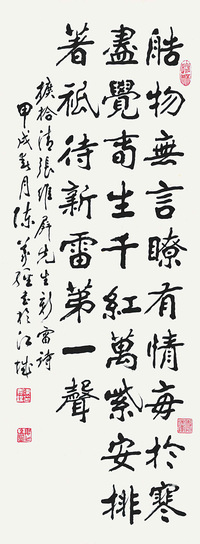 艁物無言有情每於寒
盡覺旾生千紅萬紫安排
著祇待新雷第一聲
拾清張維屏先生新雷詩
甲戌月陳書於江城